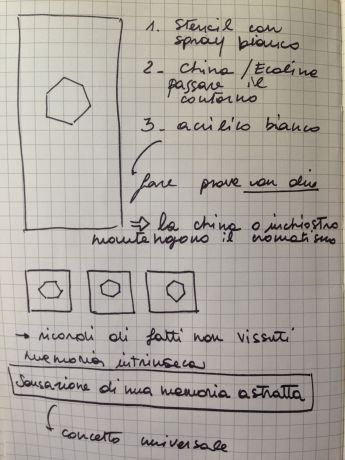 1. Stencil con
spray bianco
2- China / Ecoline
passare il
contorno
3- acrilico bianco
fare prove
⇒ la china o inchiostro
mantengono il cromatismo
→ ricordi di fatti non vissuti
memoria intrinseca
Sensazione di una memoria astratta
concetto universale